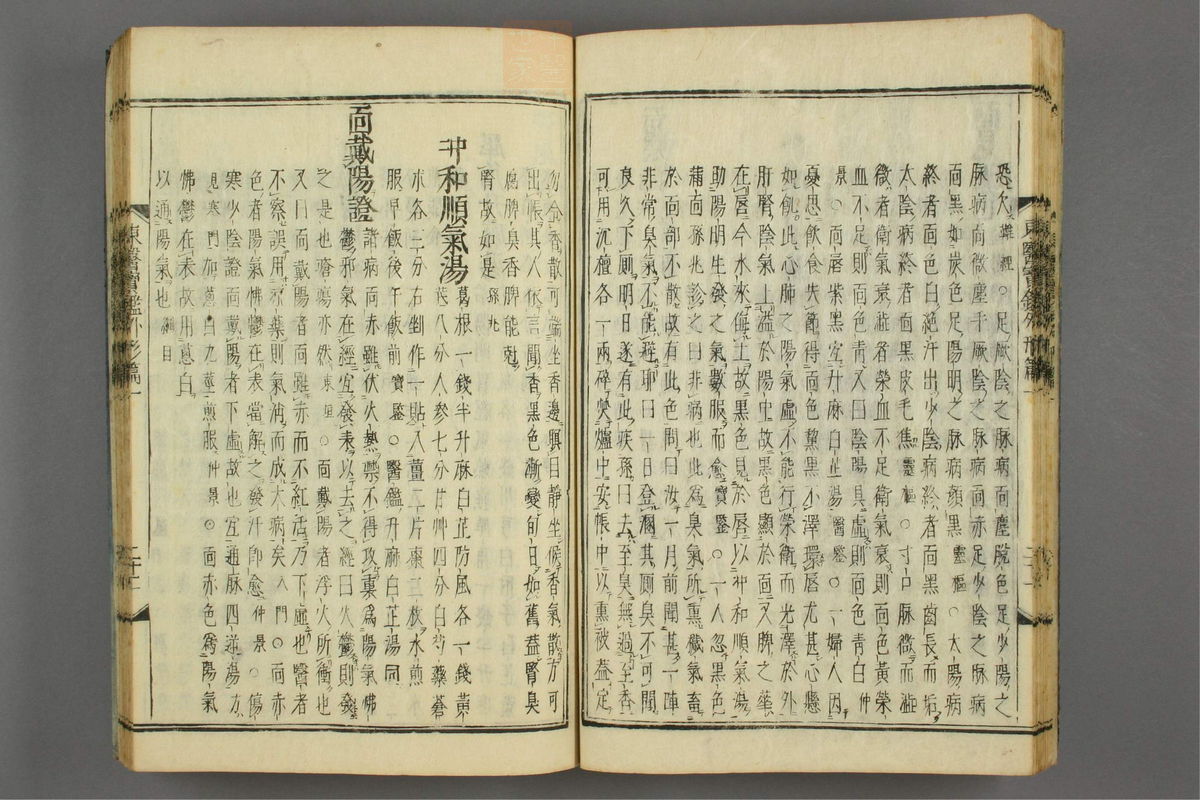 恐欠難經○足厥陰之脉病面塵脫色足少陽之
脉病面微塵手厥陰之脉病面赤足少陰之脉病
面如炭色足陽明之脉病顏黑靈樞○太陽病
終者面色白絕汗出少陰病終者面黑齒長而垢
太陰病終者面黑皮毛焦靈樞○寸口脉微而澁
微者衛氣衰澁者榮血不足衛氣衰則面色黃榮
血不足則面色靑又曰陰陽具虛則面色靑白仲
景○面唇紫黑宜升麻白芷湯醫鑒○一婦人因
憂思飮食失節得面色黧黑不澤環唇尤甚心懸
如飢此心肺之陽氣虛不能行榮衛而光澤於外
肝腎陰氣上溢於陽中故黑色顯於面又脾之華
在唇今水來侮土故黑色見於唇以冲和順氣湯
助陽明生發之氣數服而愈寶鑒○一人忽黑色
蒲面孫兆診之曰非病也此爲臭氣所熏穢氣畜
於面部不散故有此色問曰汝一月前聞甚一陣
非常臭氣不能避耶曰一日登溷其厠臭不可聞
良久下厠明日遂有此疾孫曰去至臭無過至香
可用沉檀各一兩碎焚爐中安帳中以熏被蓋定
勿令香散可端坐香邊瞑目靜坐候香氣散方可
出帳其人依言聞香黑色漸變旬日如舊盖腎臭
腐脾臭香脾能剋
腎故如是孫兆
冲和順氣湯葛根一錢半升麻白芷防風各一錢黃
芪八分人參七分甘艸四分白芍藥蒼
朮各二分右剉作一貼入薑二片棗二枚水煎
服早飯後午飯前寶鑒○醫鑑升麻白芷湯同
面戴陽證諸病面赤雖伏火熱禁不得攻裏爲陽氣怫
鬱邪氣在經宜發表以去之經曰火鬱則發
之是也瘍亦然東垣○面戴陽者浮火所衝也
又曰面戴陽者面雖赤而不紅活乃下虛也醫者
不察誤用凉藥則氣消而成大病矣入門○面赤
色者陽氣怫鬱在表當解之發汗卽愈仲景○傷
寒少陰證面戴陽者下虛故也宜通脉四逆湯方
見寒門加葱白九莖煎服仲景○面赤色爲陽氣
怫鬱在表故用葱白
以通陽氣也綱目
東醫寶鑑外形篇一
二十
東醫寶鑑外形篇一
二十一